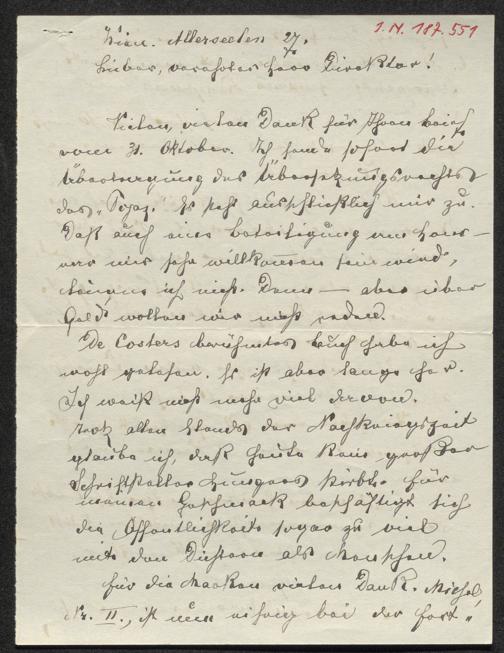 I.N. 187.551
Wien. Allerseelen 27.
Lieber, verehrter Herr Direktor!
Vielen, vielen Dank für Ihren Brief
vom 31. Oktober. Ich sende sofort die
Übertragung des Übersetzungsrechts
des " ". Es steht ausschließlich mir zu.
Daß auch eine Beteiligung am Hono-
rar mir sehr willkommen sein wird,
leugne ich nicht. Denn — aber über
Geld wollen wir nicht reden.
De Costers berühmtes Buch habe ich
wohl gelesen. Es ist aber lange her.
Ich weiß nicht mehr viel davon.
Trotz allen Elends der Nachkriegszeit
glaube ich, daß heute kein großer
Schriftsteller Hungers stirbt. Für
meinen Geschmack beschäftigt sich
die Öffentlichkeit sogar zu viel
mit den Dichtern als Menschen.
Für die Marken vielen Dank. Michel
Nr. II., ist nun eifrig bei der Fort-